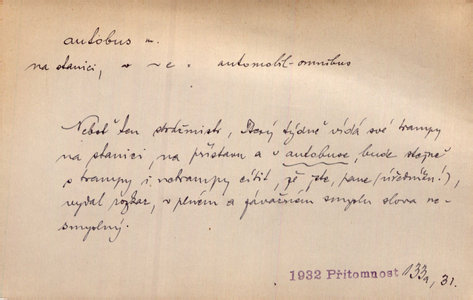 autobus m.
na stanici, v ~e . automobil-omnibus
Neboť ten strážmistr, který týdně vídá své trampy
na stanici, na přístavu a v autobuse, bude stejně
s trampy i netrampy cítit, že jste, pane (úředníče!),
vydal rozkaz, v plném a závažném smyslu slova ne-
smyslný.
1932 Přítomnost 133a, 31.